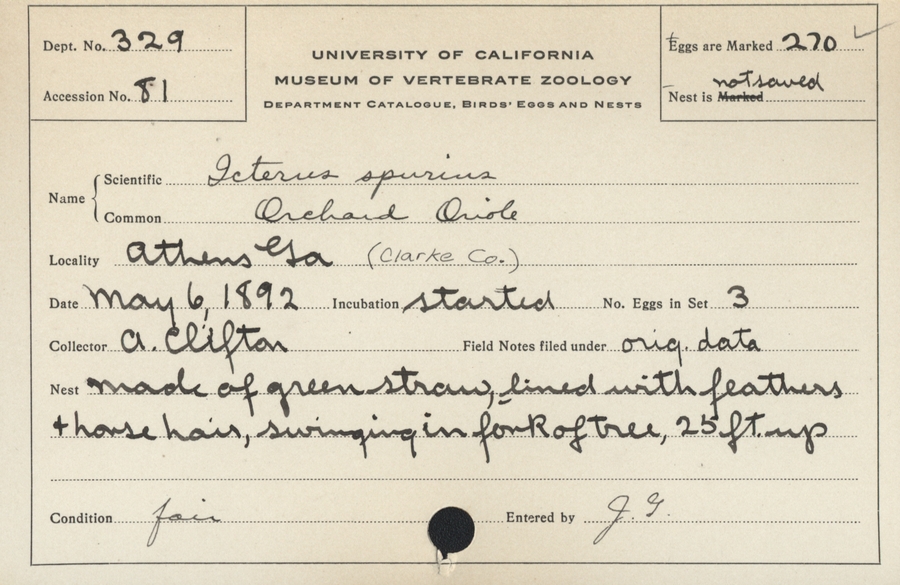 Dept. No. 329
Accession No. 81
UNIVERSITY OF CALIFORNIA
MUSEUM OF VERTEBRATE ZOOLOGY
DEPARTMENT CATALOGUE, BIRDS' EGGS AND NESTS
Eggs are Marked 270
not saved
Nest is Marked
Name
Scientific Icterus spurius
Common Orchard Oriole
Locality Athens Ga (Clarke Co.)
Date May 6, 1892 Incubation started No. Eggs in Set 3
Collector A. Clifton Field Notes filed under orig. data
Nest made of green straw, lined with feathers
+ horse hair, swinging in fork of tree, 25 ft. up
Condition fair Entered by J. G.